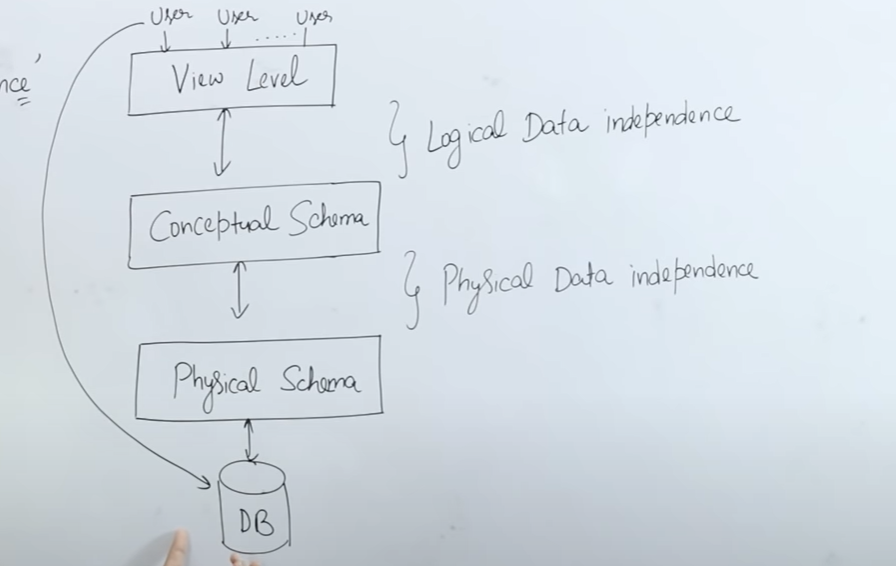 User User ..... User
nce'
View Level
Logical Data independence
Conceptual Schema
Physical Data independence
Physical Schema
DB